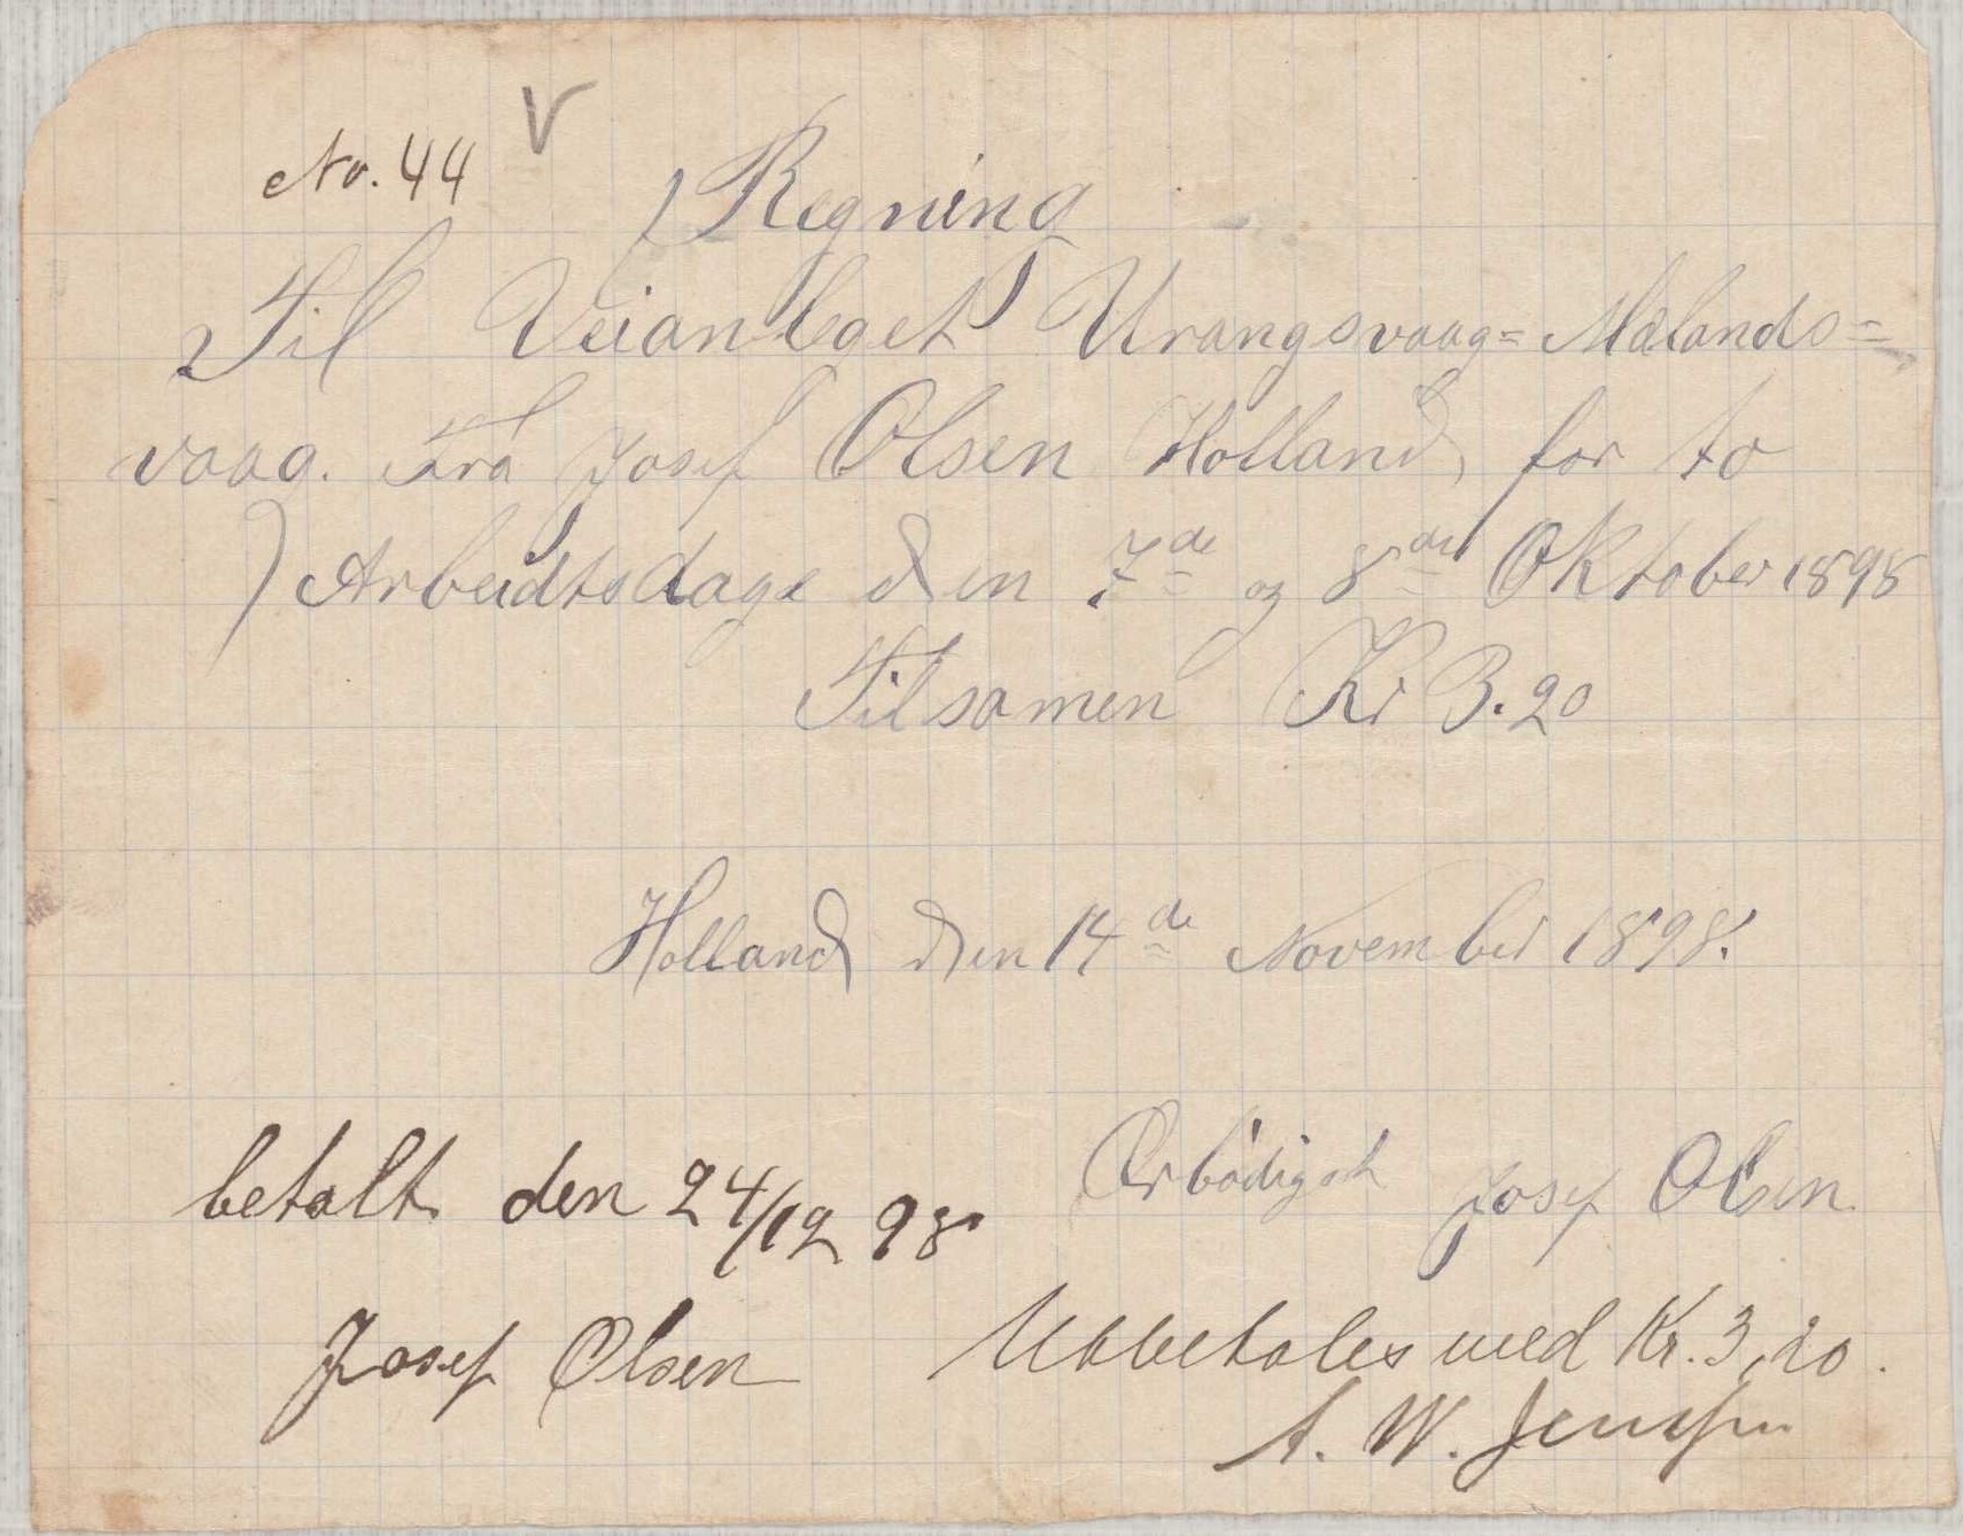 No. 44 V
Regning
Til Veianlæget Urangsvaag= Mælands=
vaag. Fra Josef Olsen Holland, for to
Arbeidtsdage den 7de og 8de Oktober 1898
Tilsamen Kr 3.20
Holland den 14de November 1898.
Ærbødigst Josef Olsen
betalt den 24/12 98
Josef Olsen
Udbetales med Kr. 3,20.
A. W. Jensen